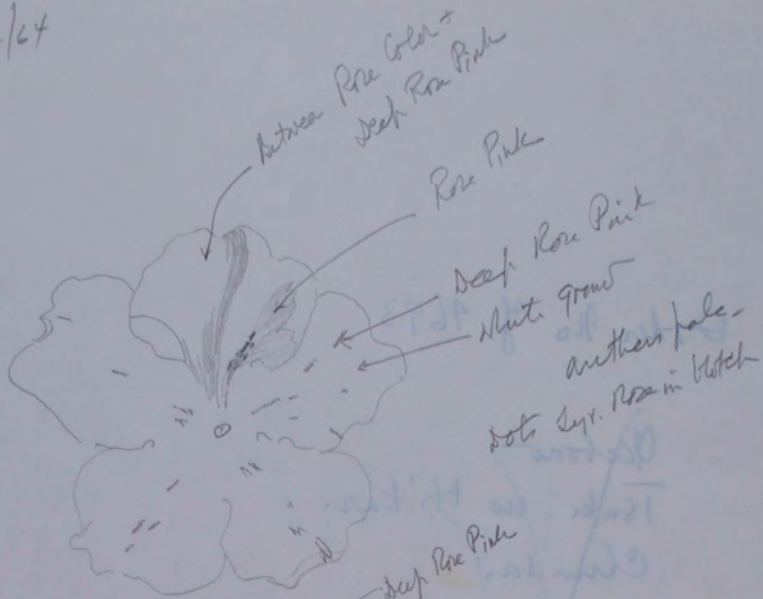 /64
Between Rose Color +
Deep Rose Pink
Rose Pink
Deep Rose Pink
white ground
anthers pale -
Dots Tyr. Rose in blotch
Deep Rose Pink